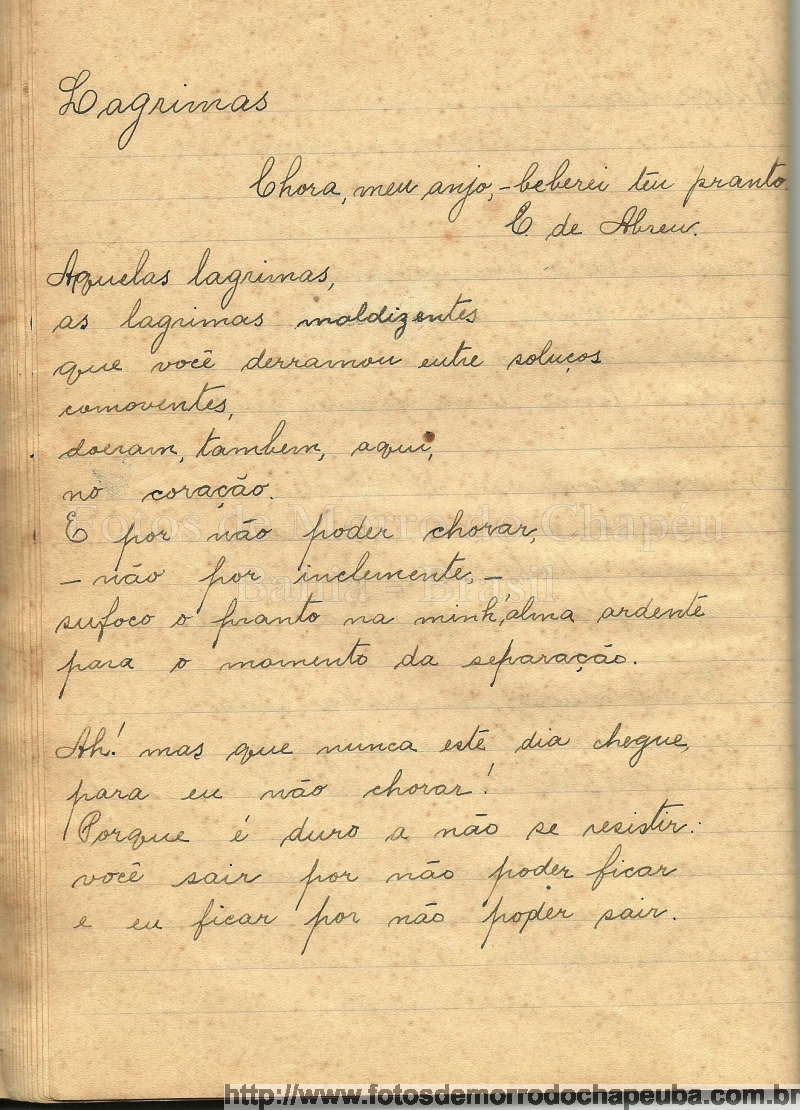 Lagrimas
Chora, meu anjo, - beberei teu pranto.
C. de Abreu.
Aquelas lagrimas,
as lagrimas maldizentes
que você derramou entre soluços
comoventes,
doeram, tambem, aqui,
no coração.
E por não poder chorar,
- não por inclemente, -
sufoco o pranto na minh'alma ardente
para o momento da separação.
Ah! mas que nunca este dia chegue,
para eu não chorar!
Porque é duro a não se resistir:
você sair por não poder ficar
e eu ficar por não poder sair.
Fotos de Morro do Chapeu
Bahia - Brasil
http://www.fotosdemorrodochapeuba.com.br